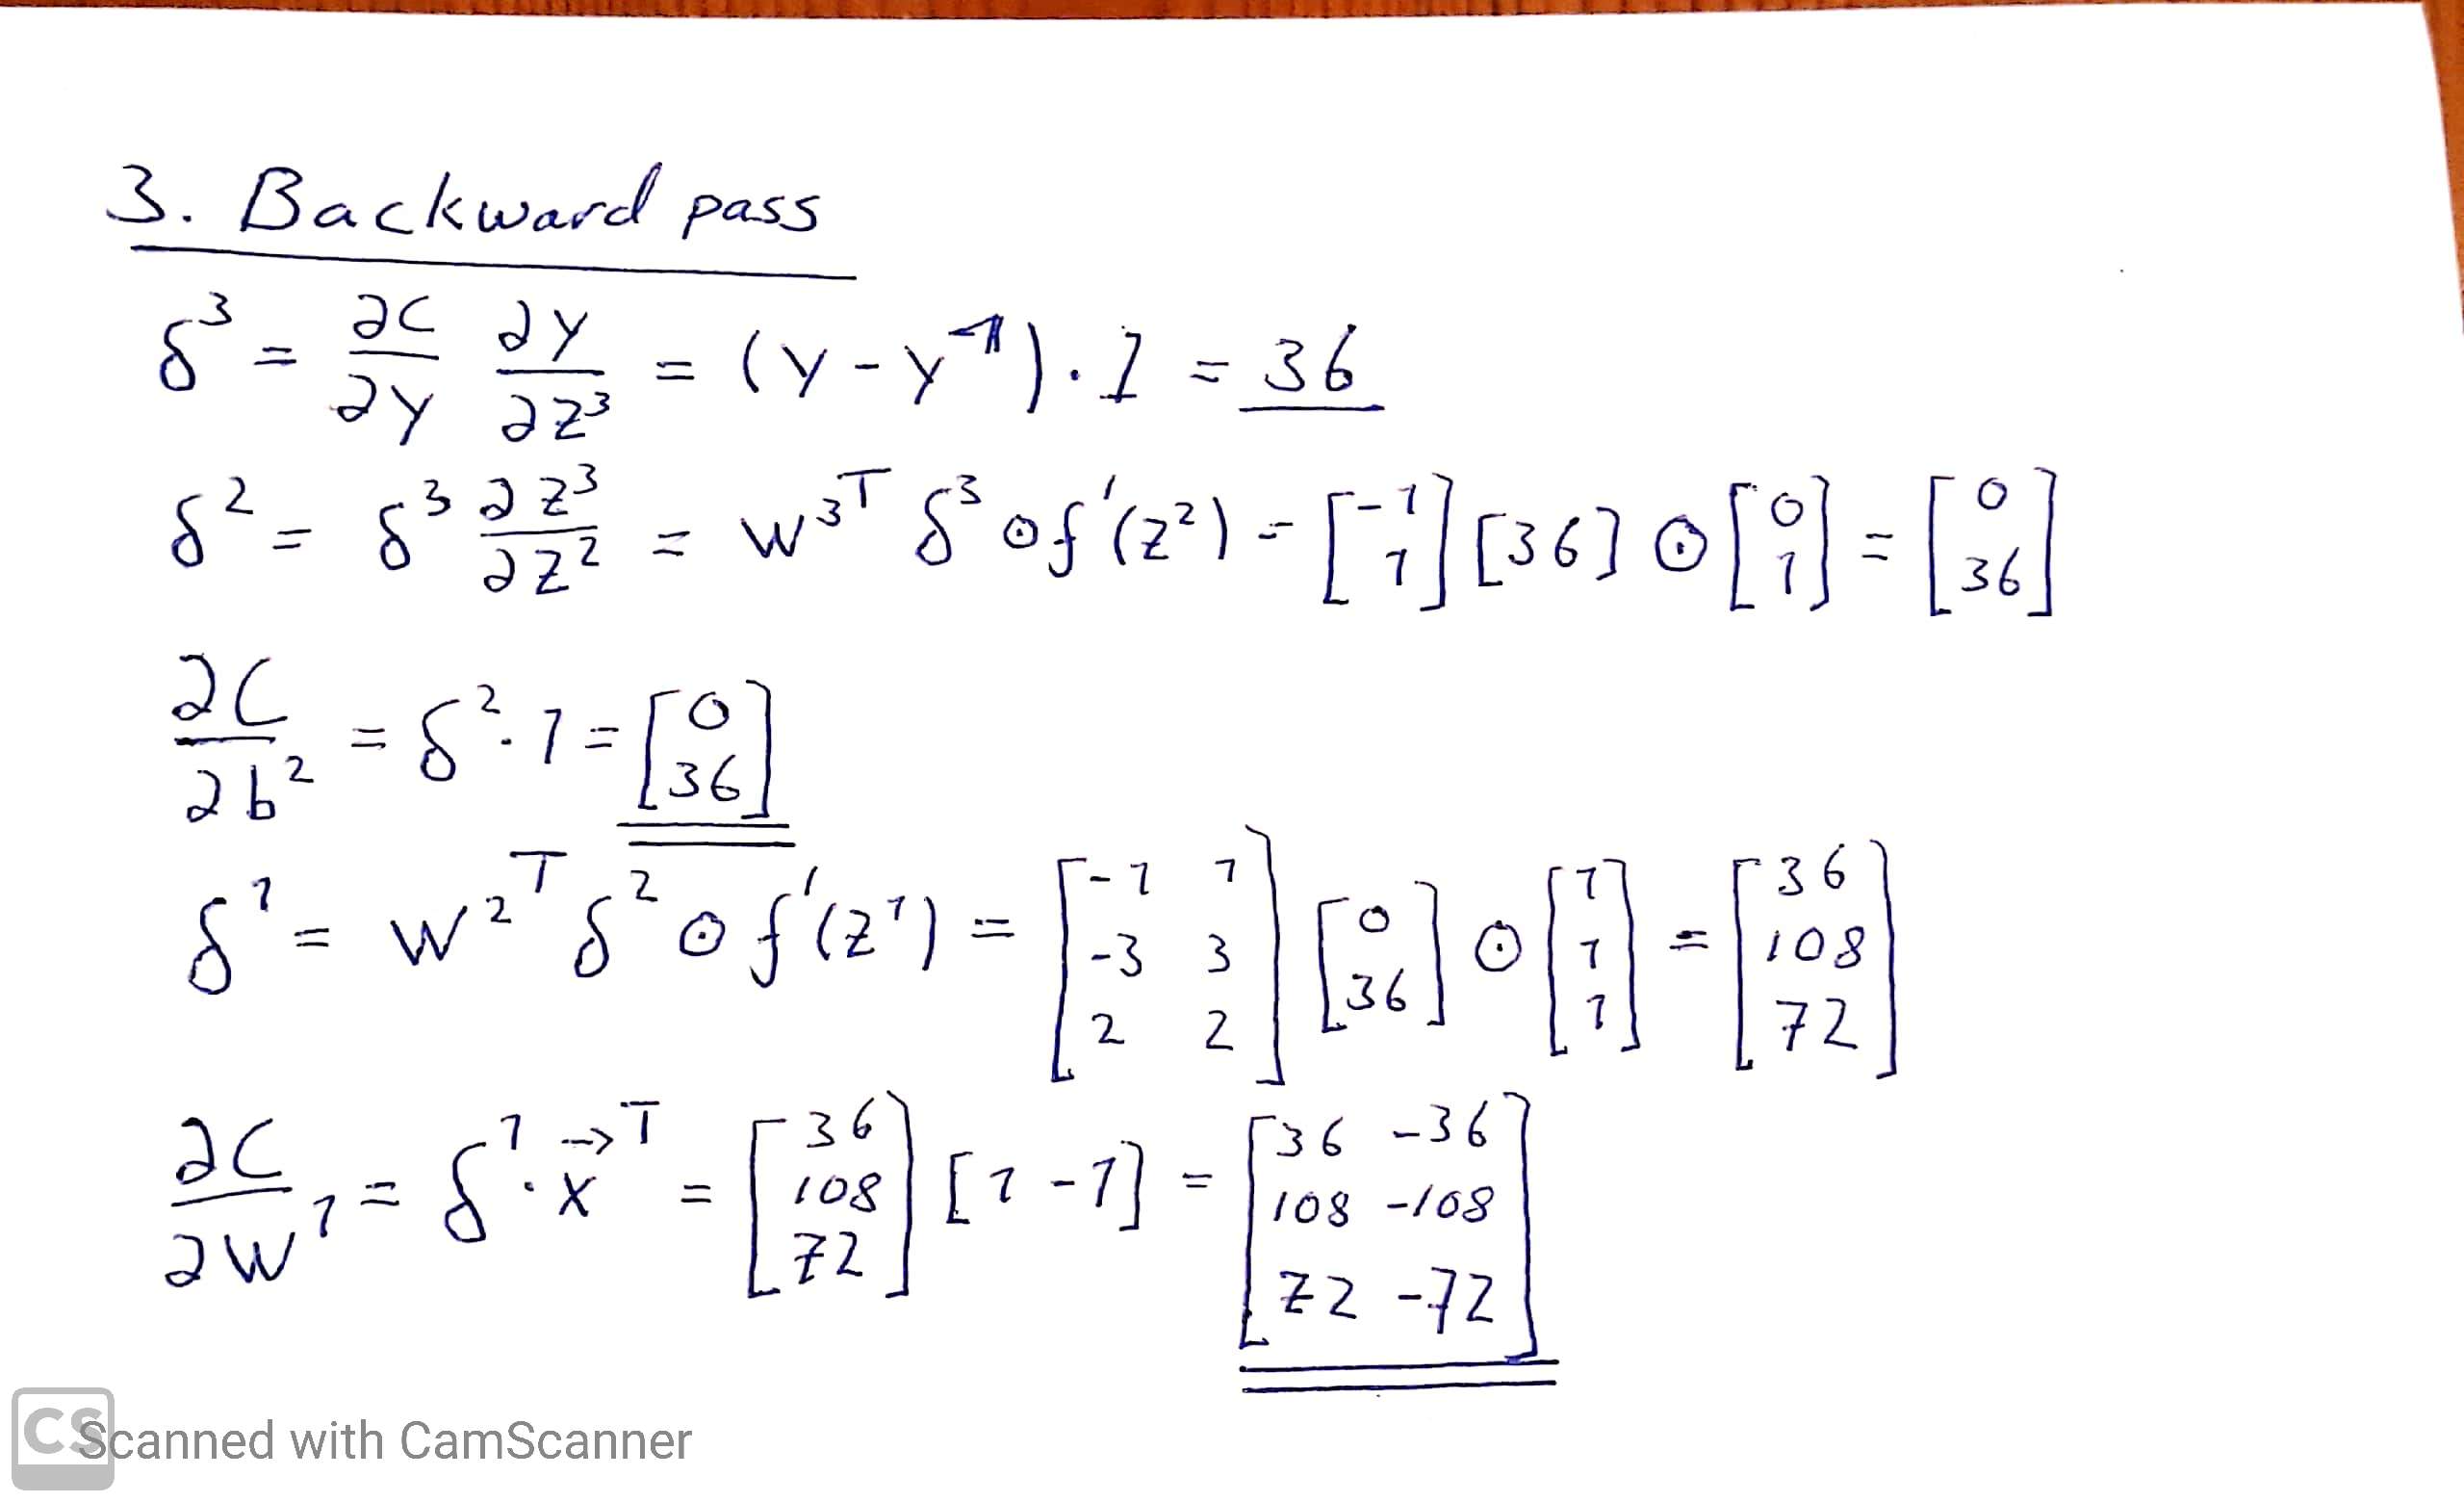 3. Backward pass
δ³ = ∂C/∂y ∂y/∂z³ = (y - y^) · 1 = 36
δ² = δ³ ∂z³/∂z² = W³ᵀ δ³ ⊙ f'(z²) = [-1; 1] [36] ⊙ [0; 1] = [0; 36]
∂C/∂b² = δ² · 1 = [0; 36]
δ¹ = W²ᵀ δ² ⊙ f'(z¹) = [-1 1; -3 3; 2 2] [0; 36] ⊙ [1; 1; 1] = [36; 108; 72]
∂C/∂W¹ = δ¹ · x⃗ᵀ = [36; 108; 72] [1 -1] = [36 -36; 108 -108; 72 -72]
CS Scanned with CamScanner